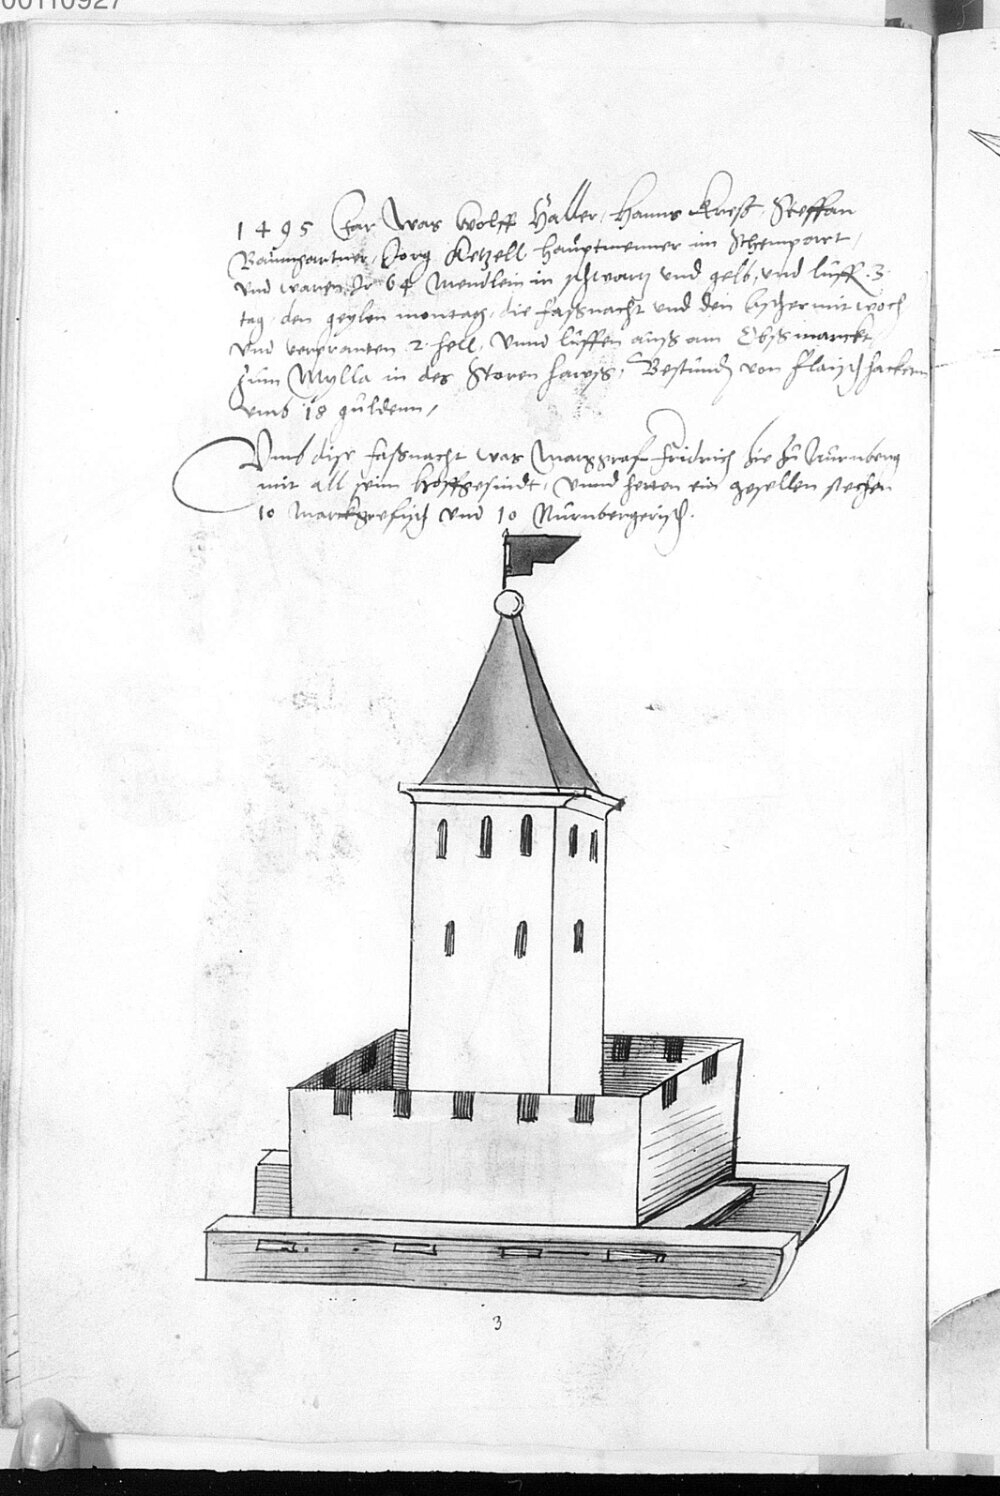 00110927
1495 Jar was Wolff Haller, Hanns Kreß, Steffan
Baumgartner, Jorg Ketzell hauptmenner im Schempart,
vnd waren Jr 64 Mendlein in schwartz vnd gelb, vnd luff 3
tag den geylen montag, die faßnacht vnd den aschermitwoch
vnd verpranten 2 hell, vnnd luffen auß am Obßmarckt
zum Mylla in des Storen hawß, Bestund von flaischhackern
vmb 18 guldenn,
Vnnd dise faßnacht was Marggraf Fridrich hie zu Nürnberg
mit all seim hoffgesindt, vnnd hetten ein gesellen stechen
10 Marckgrefisch vnd 10 Nürnbergerisch.
3